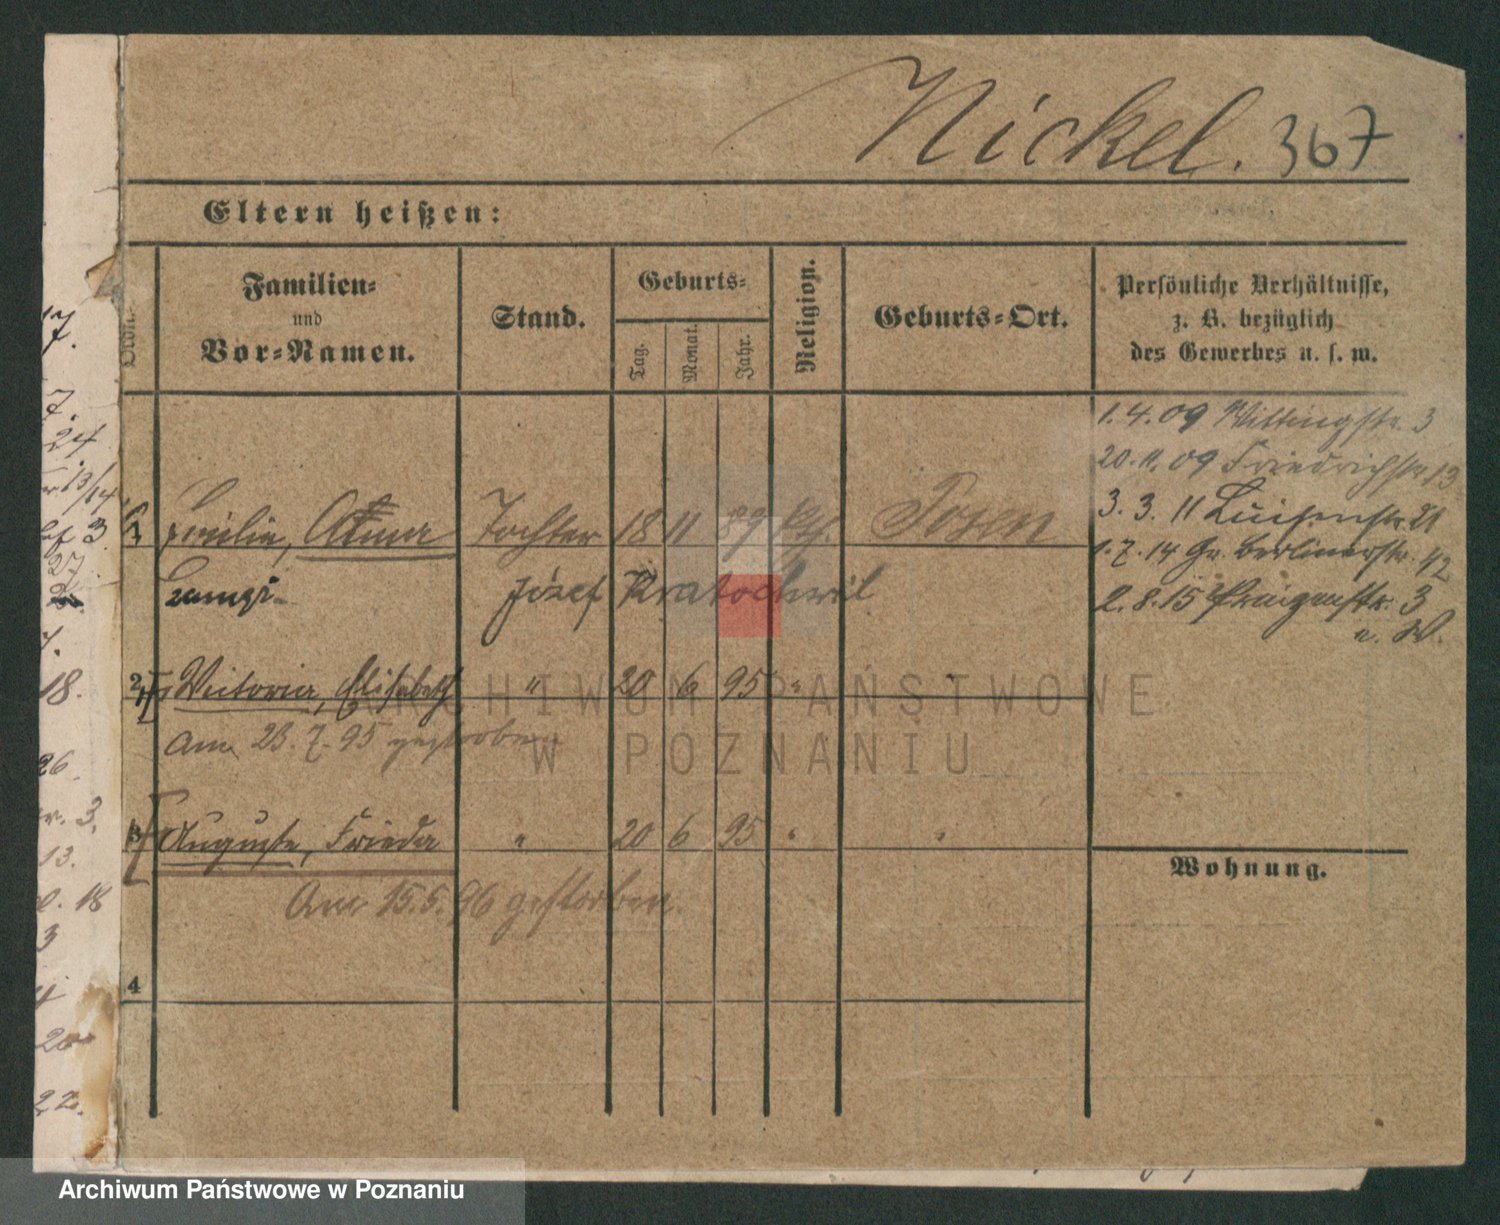 Nickel. 367
Eltern heißen:
Ordn.
Familien-
und
Vor-Namen.
Stand.
Geburts-
Tag.
Monat.
Jahr.
Religion.
Geburts-Ort.
Persönliche Verhältnisse,
z. B. bezüglich
des Gewerbes u. s. w.
1.4.09 Wittingstr. 3
20.11.09 Friedrichstr 13
3. 3. 11 Luisenstr. 21
1.7.14 Gr. Berlinerstr. 42
2.8.15 3
Emilie, Tochter 18 11 89 Kth. Posen
Józef Kratochwil
2 Victoria, Elisabeth " 20 6 95 "
Am 23.7.95 gestorben
3 Auguste, Frieda " 20 6 95 " "
Am 15.5.96 gestorben.
Wohnung.
4
7.
7.
24
13/14
3
27.
18.
26.
3.
13.
18
3
20
22.
ARCHIWUM PAŃSTWOWE
W POZNANIU
Archiwum Państwowe w Poznaniu